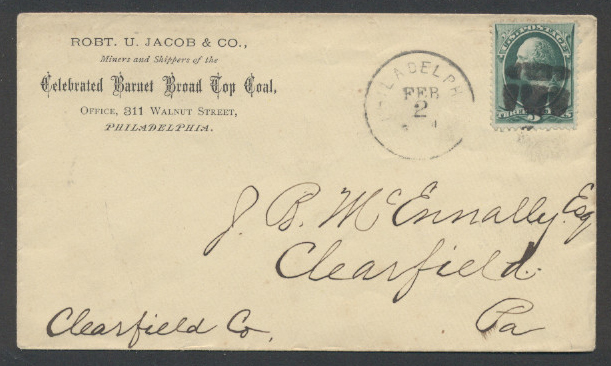 ROBT. U. JACOB & CO.,
Miners and Shippers of the
Celebrated Barnet Broad Top Coal,
OFFICE, 311 WALNUT STREET,
PHILADELPHIA.
PHILADELPH
FEB
2
U.S. POSTAGE
THREE
J. B. McEnnally, Esq
Clearfield
Pa
Clearfield Co,